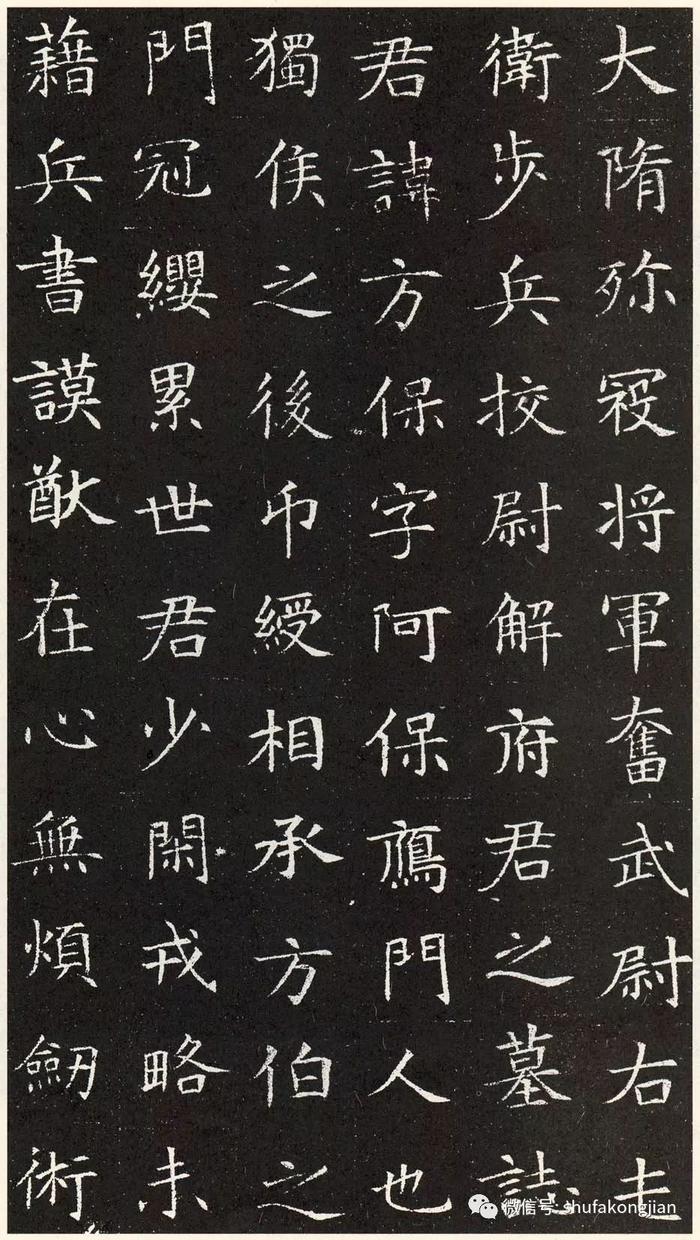 大隋殄寇将軍奮武尉右走
衛步兵挍尉解府君之墓誌
君諱方保字阿保鴈門人也
獨侯之後印綬相承方伯之
門冠纓累世君少閑戎略未
藉兵書謨猷在心無煩劒術
微信号: shufakongjian